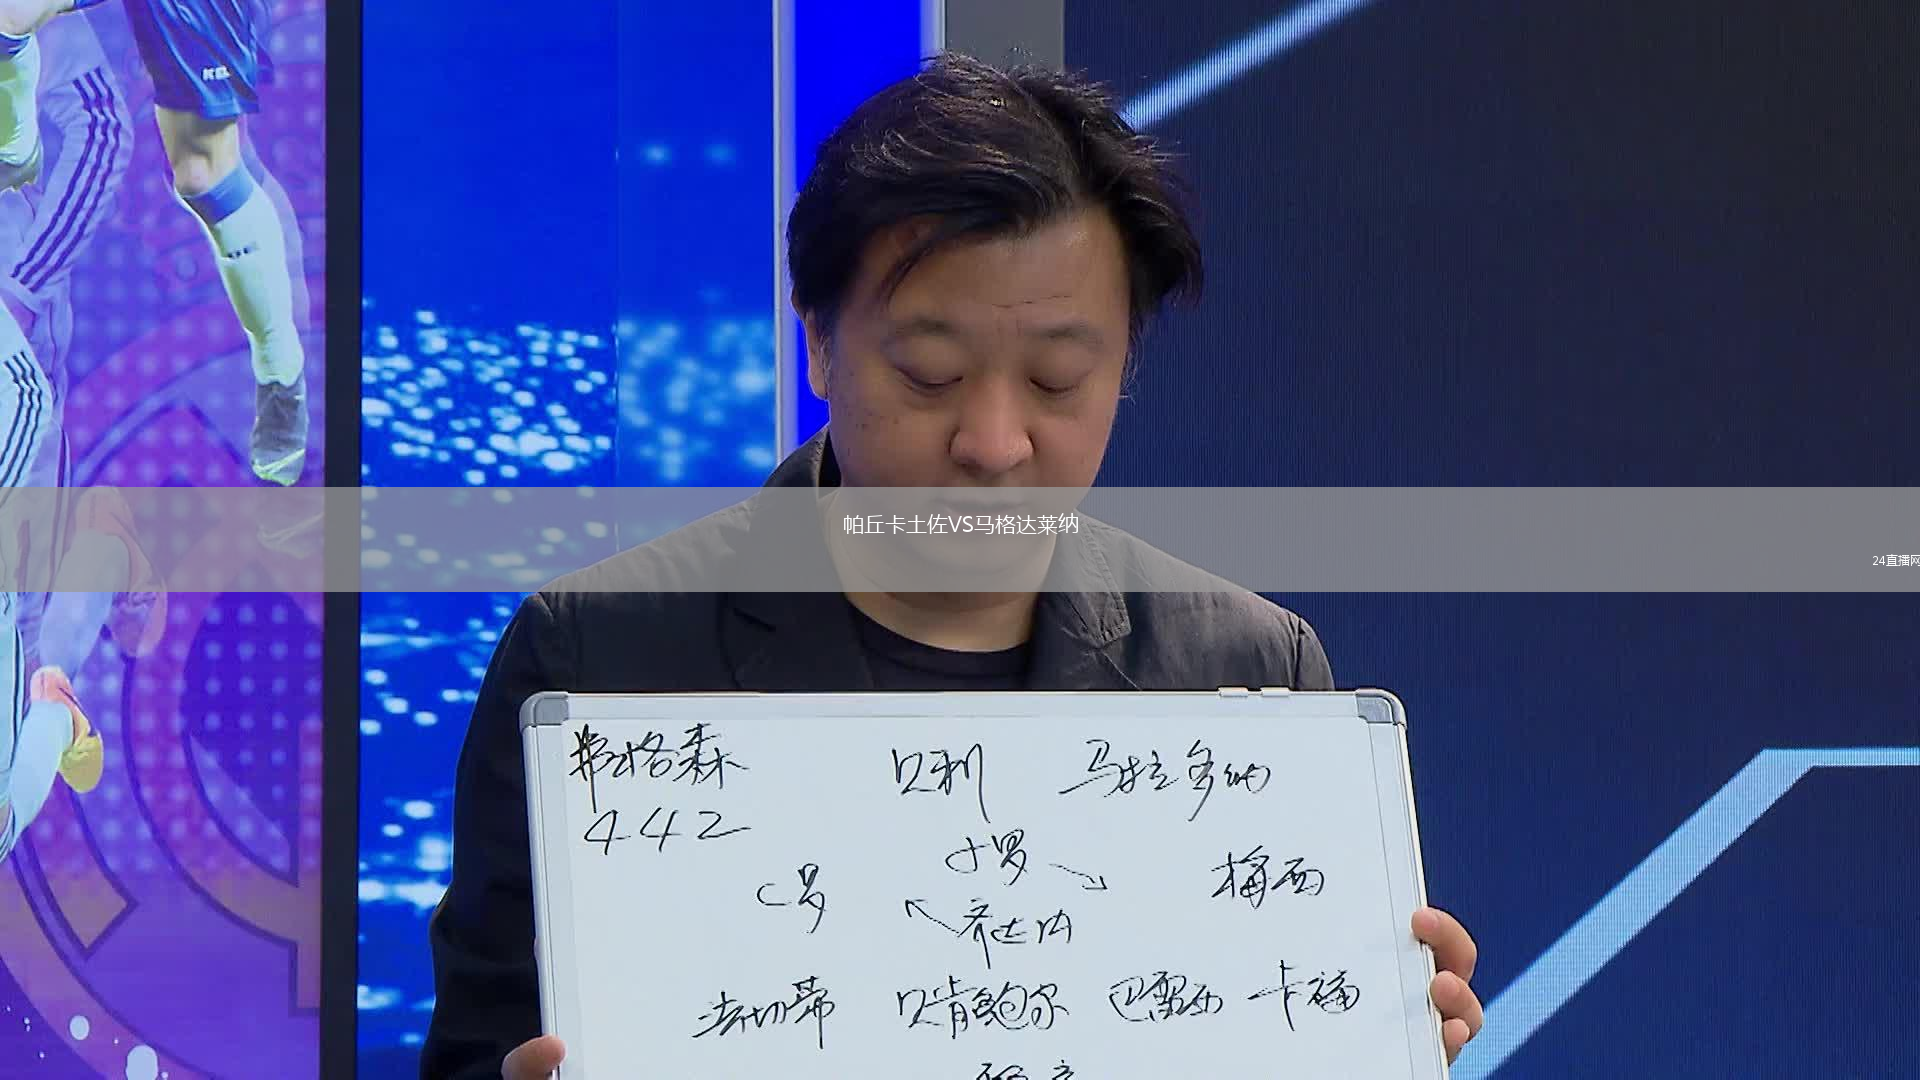 帕丘卡土佐VS马格达莱纳
24直播网
弗格森 贝利 马拉多纳
442
小罗
C罗 梅西
齐达内
法切蒂 贝肯鲍尔 巴雷西 卡福